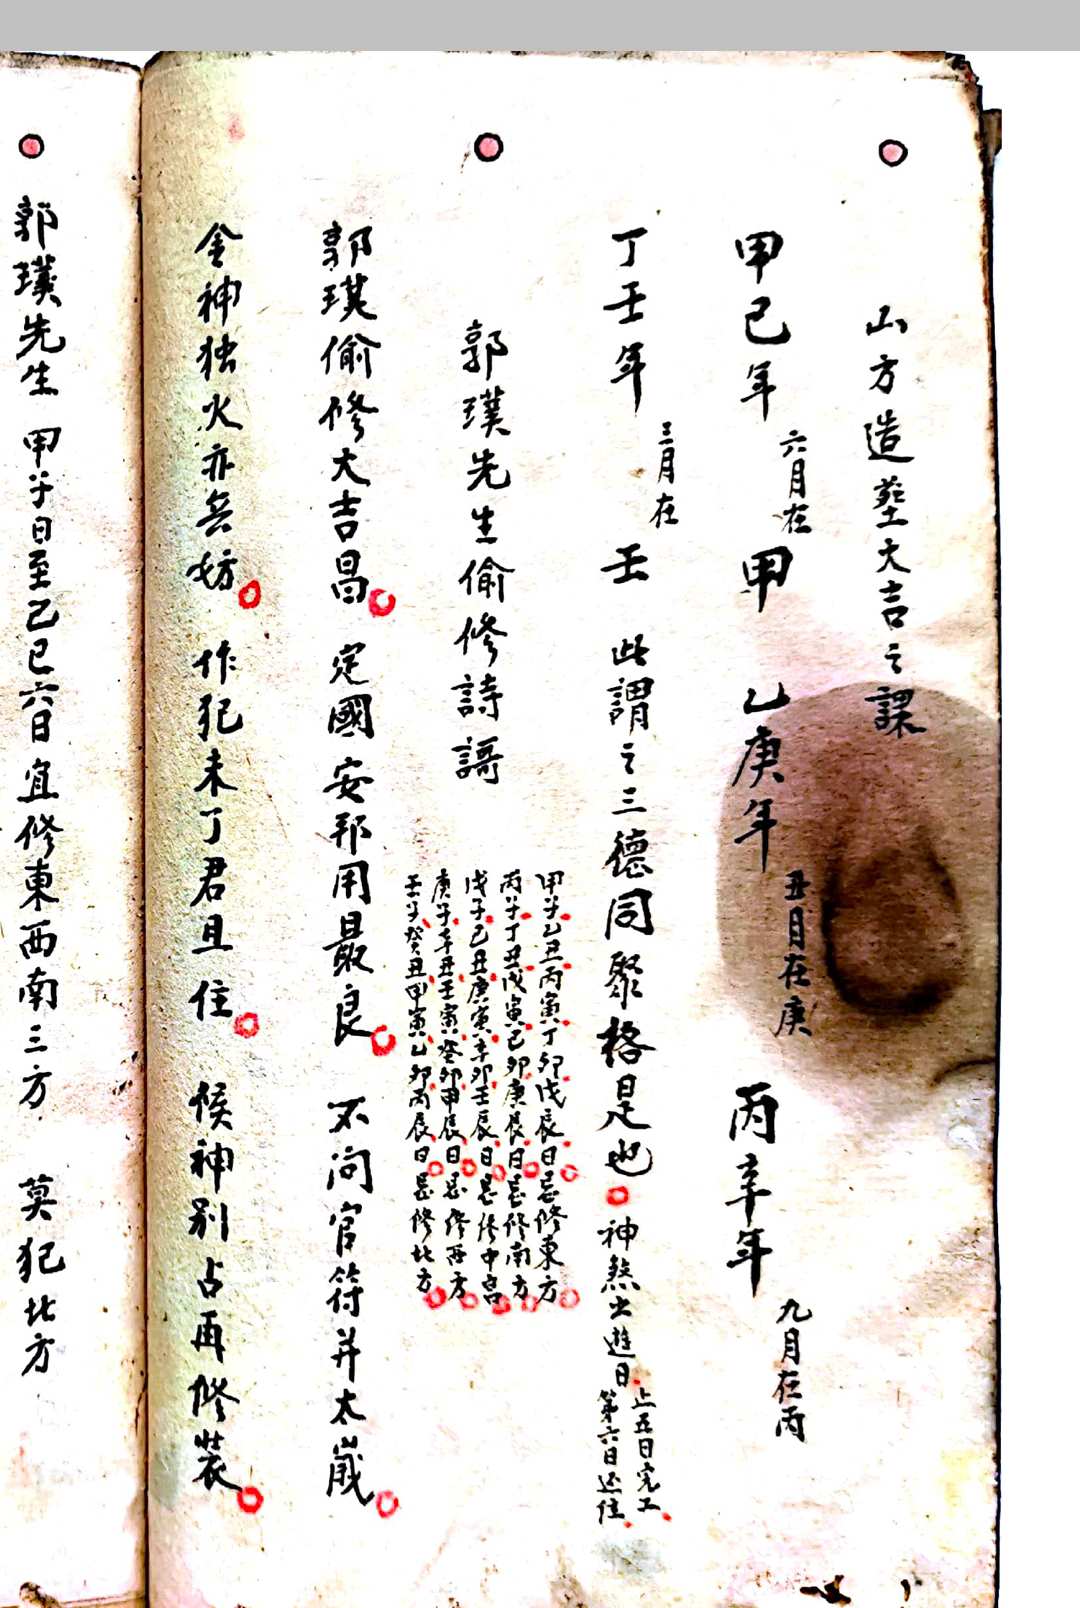 山方造葬大吉之課
甲己年 六月在甲 乙庚年 丑月在庚 丙辛年 九月在丙
丁壬年 三月在壬 此謂之三德同聚格是也 神煞出遊日 上五日完工 第六日还住
郭璞先生偷修詩謌
甲子乙丑丙寅丁卯戊辰日忌修東方
丙子丁丑戊寅己卯庚辰日忌修南方
戊子己丑庚寅辛卯壬辰日忌修中宮
庚子辛丑壬寅癸卯甲辰日忌修西方
壬子癸丑甲寅乙卯丙辰日忌修北方
郭璞偷修大吉昌 定國安邦用最良 不问官符并太嵗
金神独火亦无妨 作犯未了君且住 候神别占再修装
郭璞先生 甲子日至己巳六日宜修東西南三方 莫犯北方